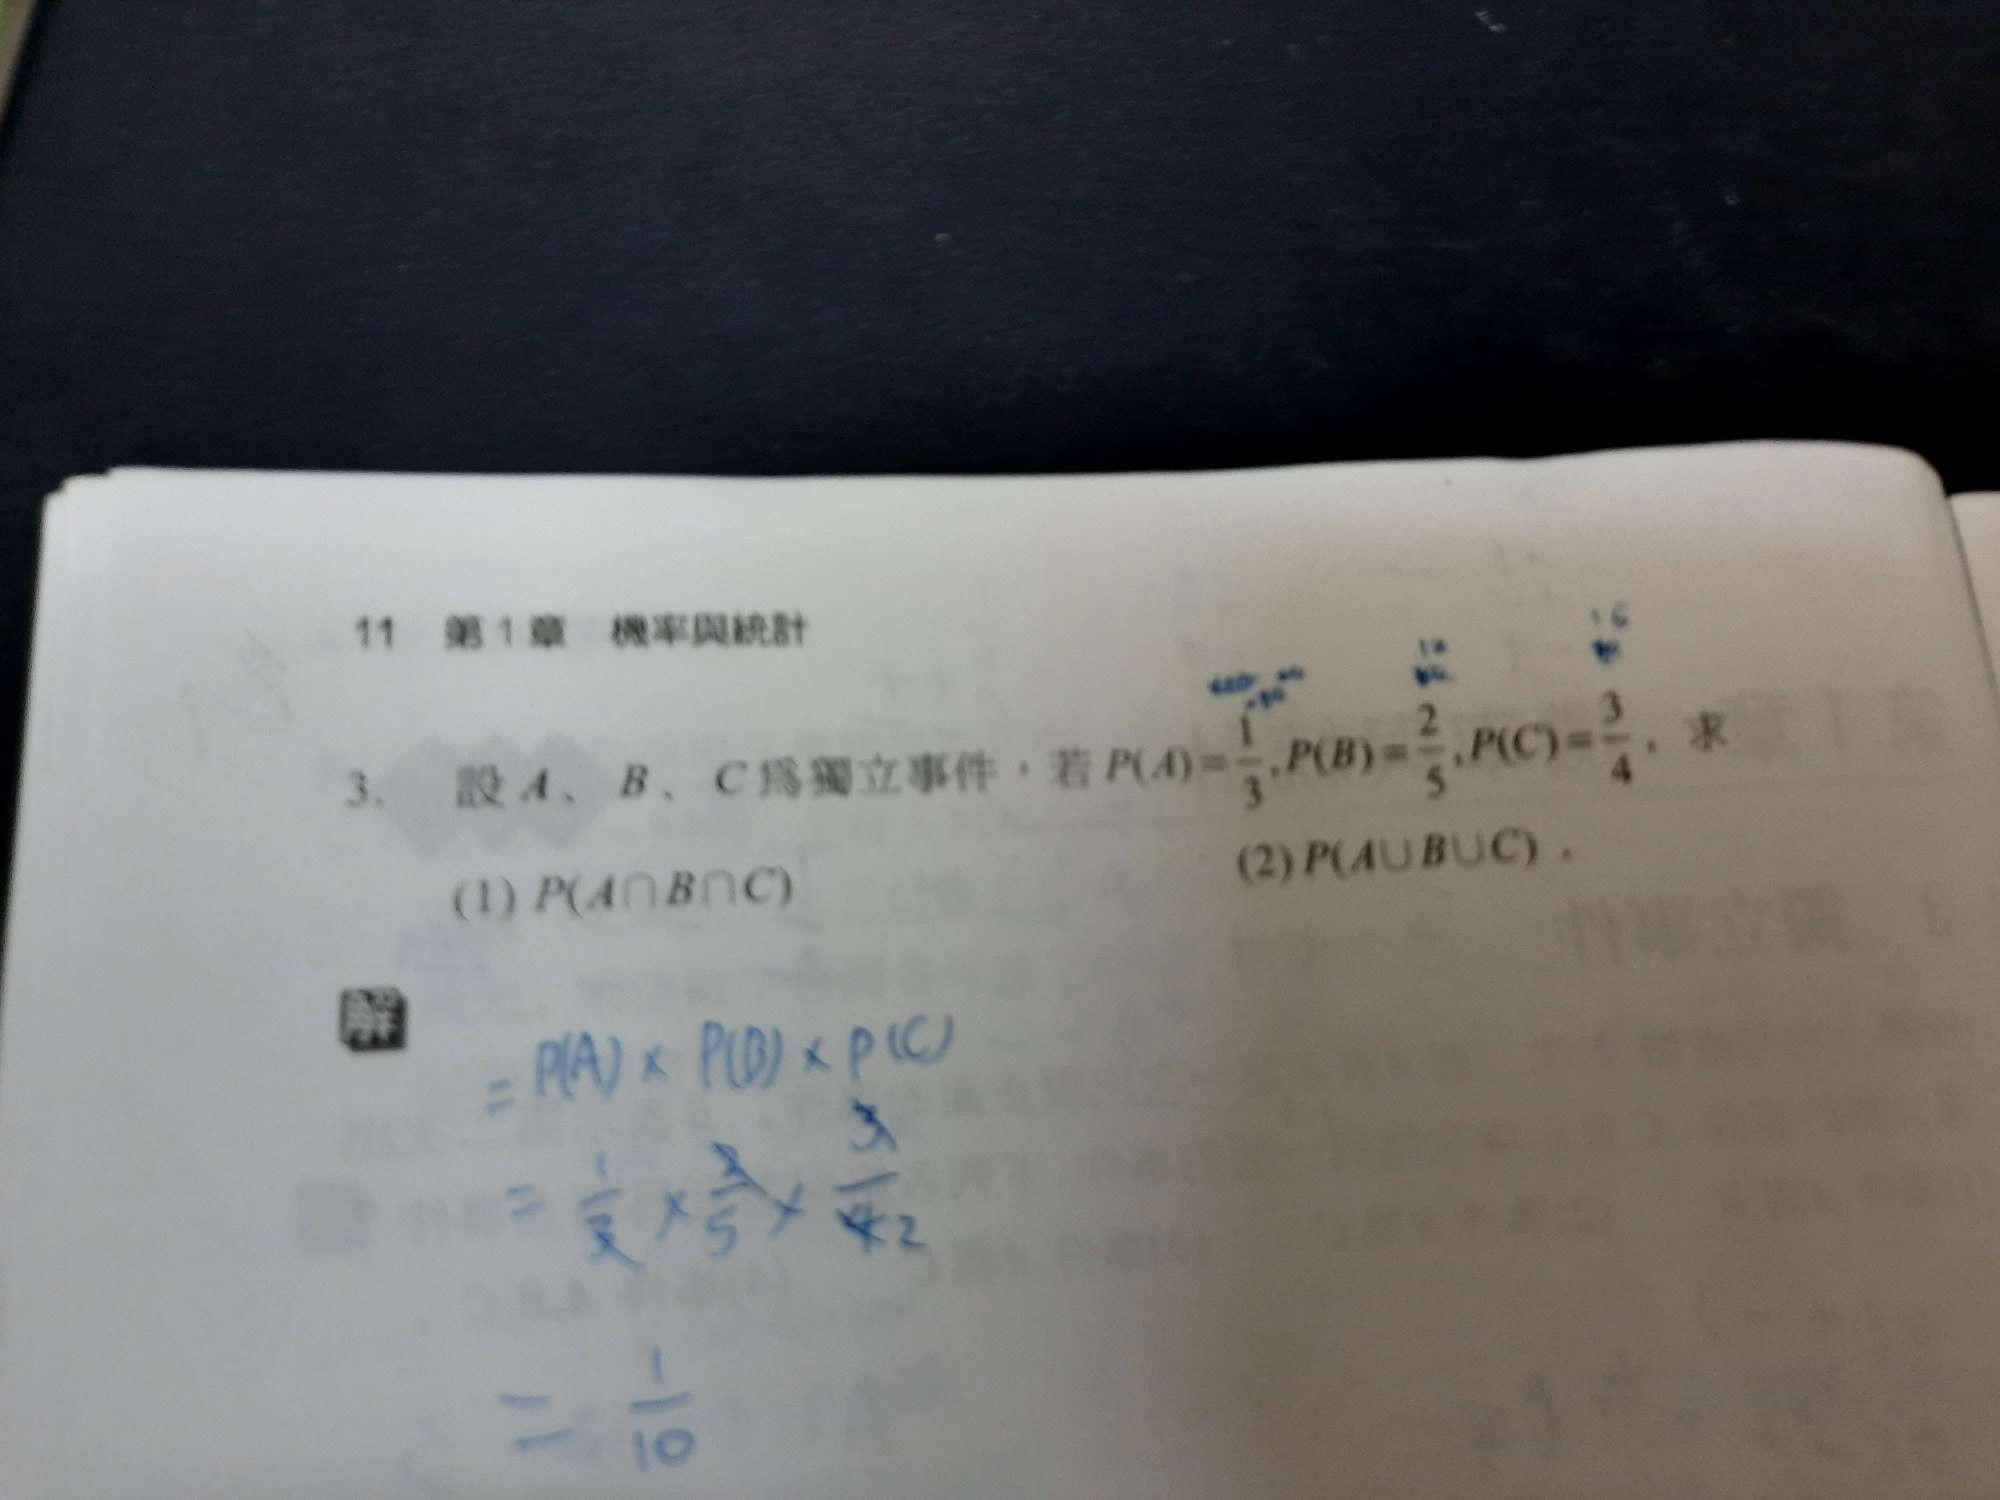 11 第1章 機率與統計
3. 設A、B、C為獨立事件，若P(A)=1/3,P(B)=2/5,P(C)=3/4，求
(1) P(A∩B∩C) (2) P(A∪B∪C).
解
= P(A) × P(B) × P(C)
= 1/3 × 2/5 × 3/4 2
= 1/10